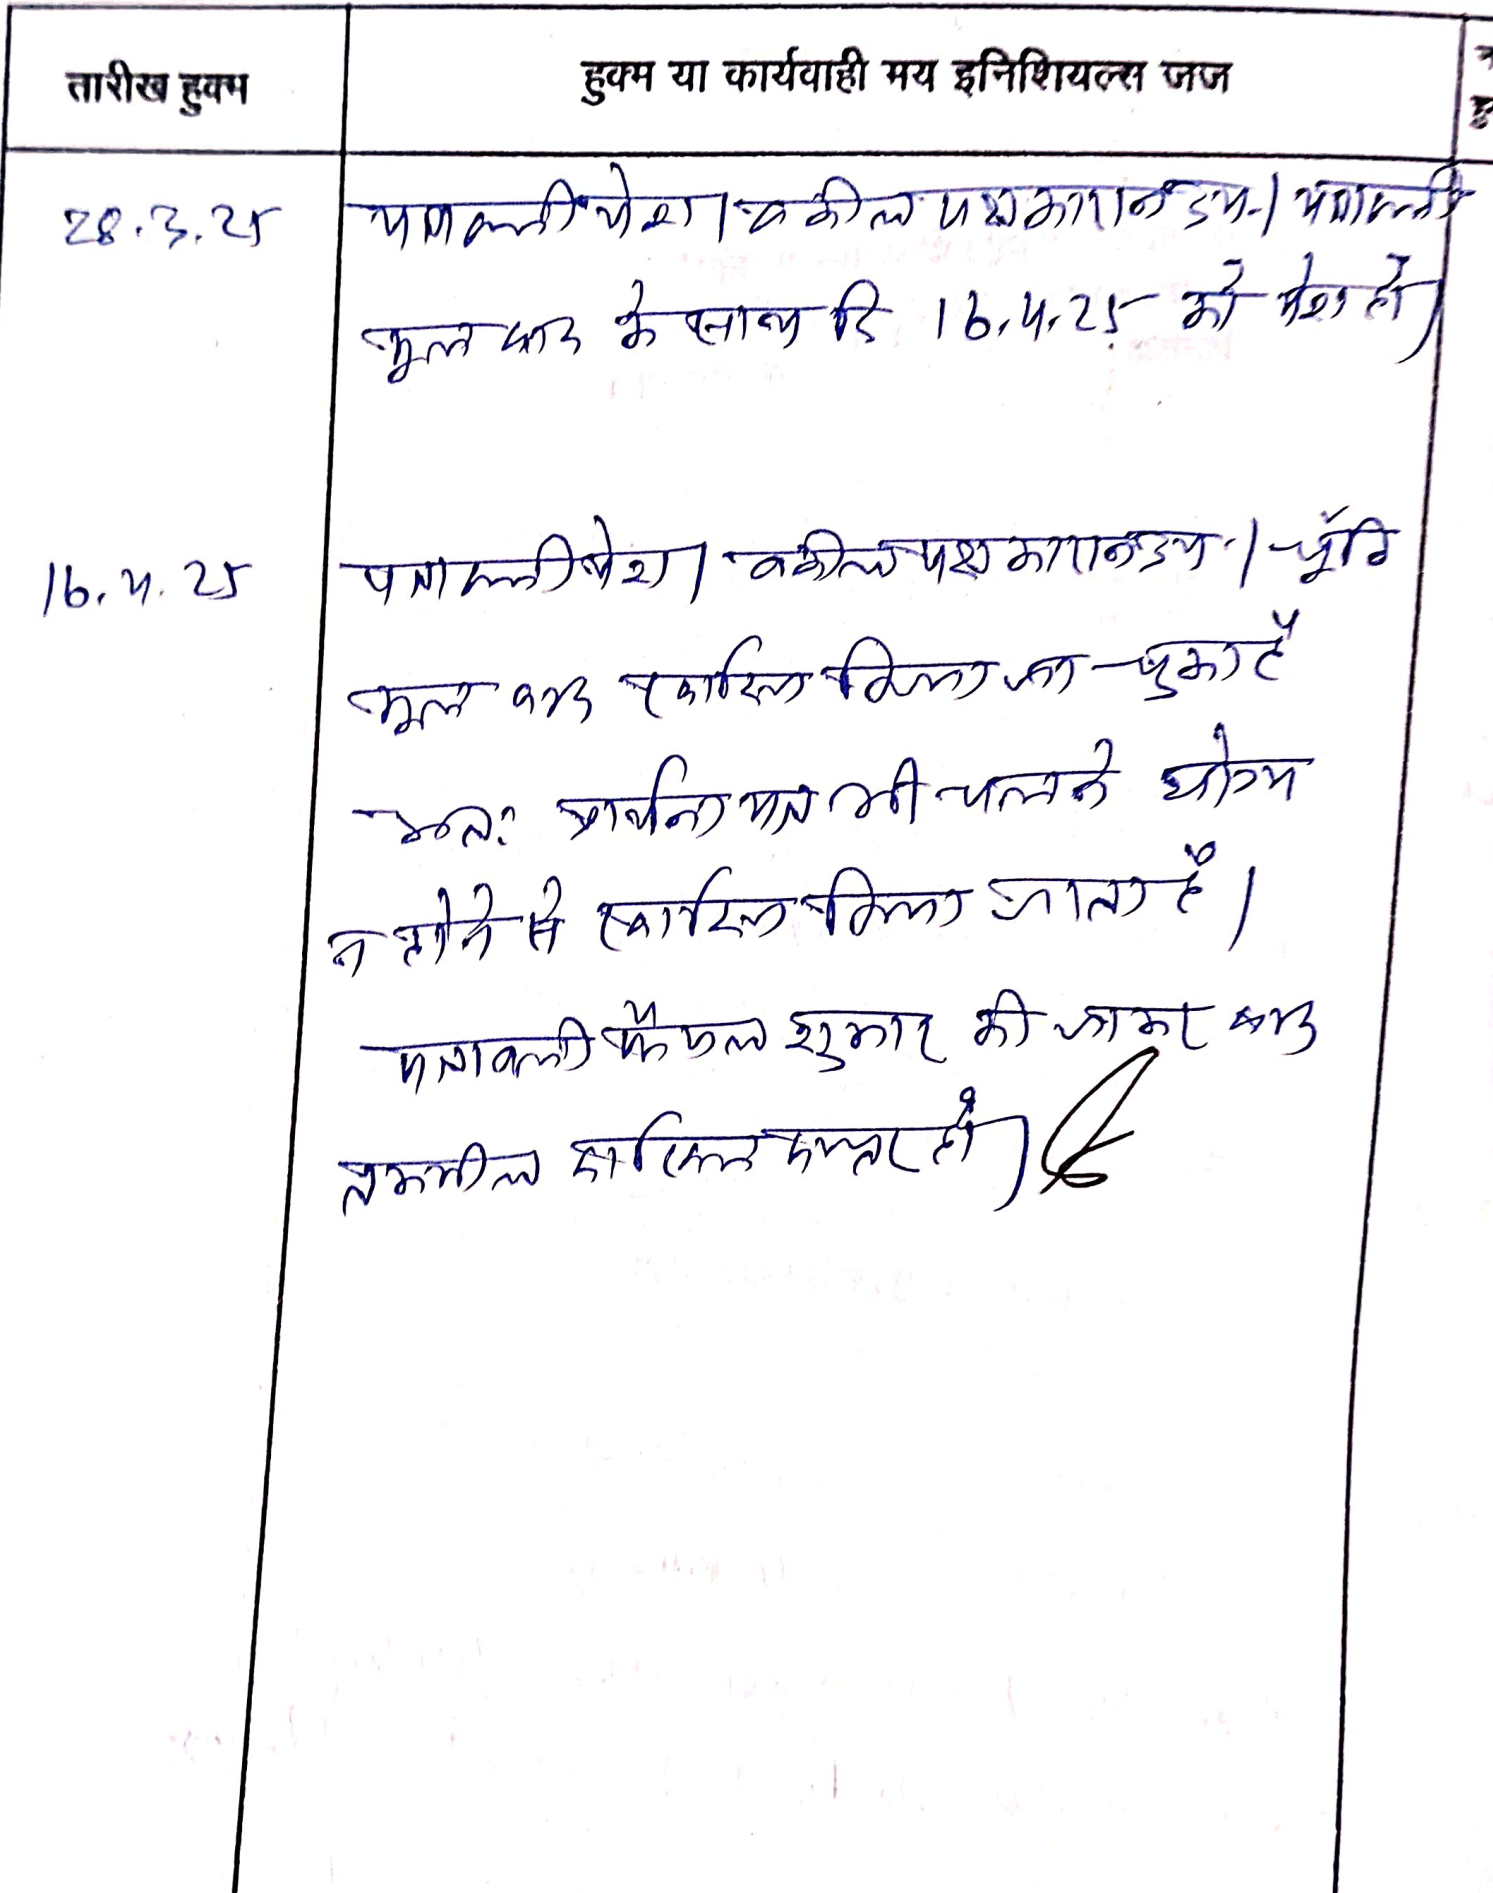 तारीख हुक्म
हुक्म या कार्यवाही मय इनिशियल्स जज
28.3.25
पत्रावली पेश। वकील पक्षकारान उप.। पत्रावली
मूल वाद के साथ दि 16.4.25 को पेश हो।
16.4.25
पत्रावली पेश। वकील पक्षकारान उप.। चूँकि
मूल वाद खारिज किया जा चुका है
अतः प्रार्थना पत्र भी चलने योग्य
न होने से खारिज किया जाता है।
पत्रावली फैसल शुमार की जाकर बाद
तकमील दाखिल दफ्तर हो।